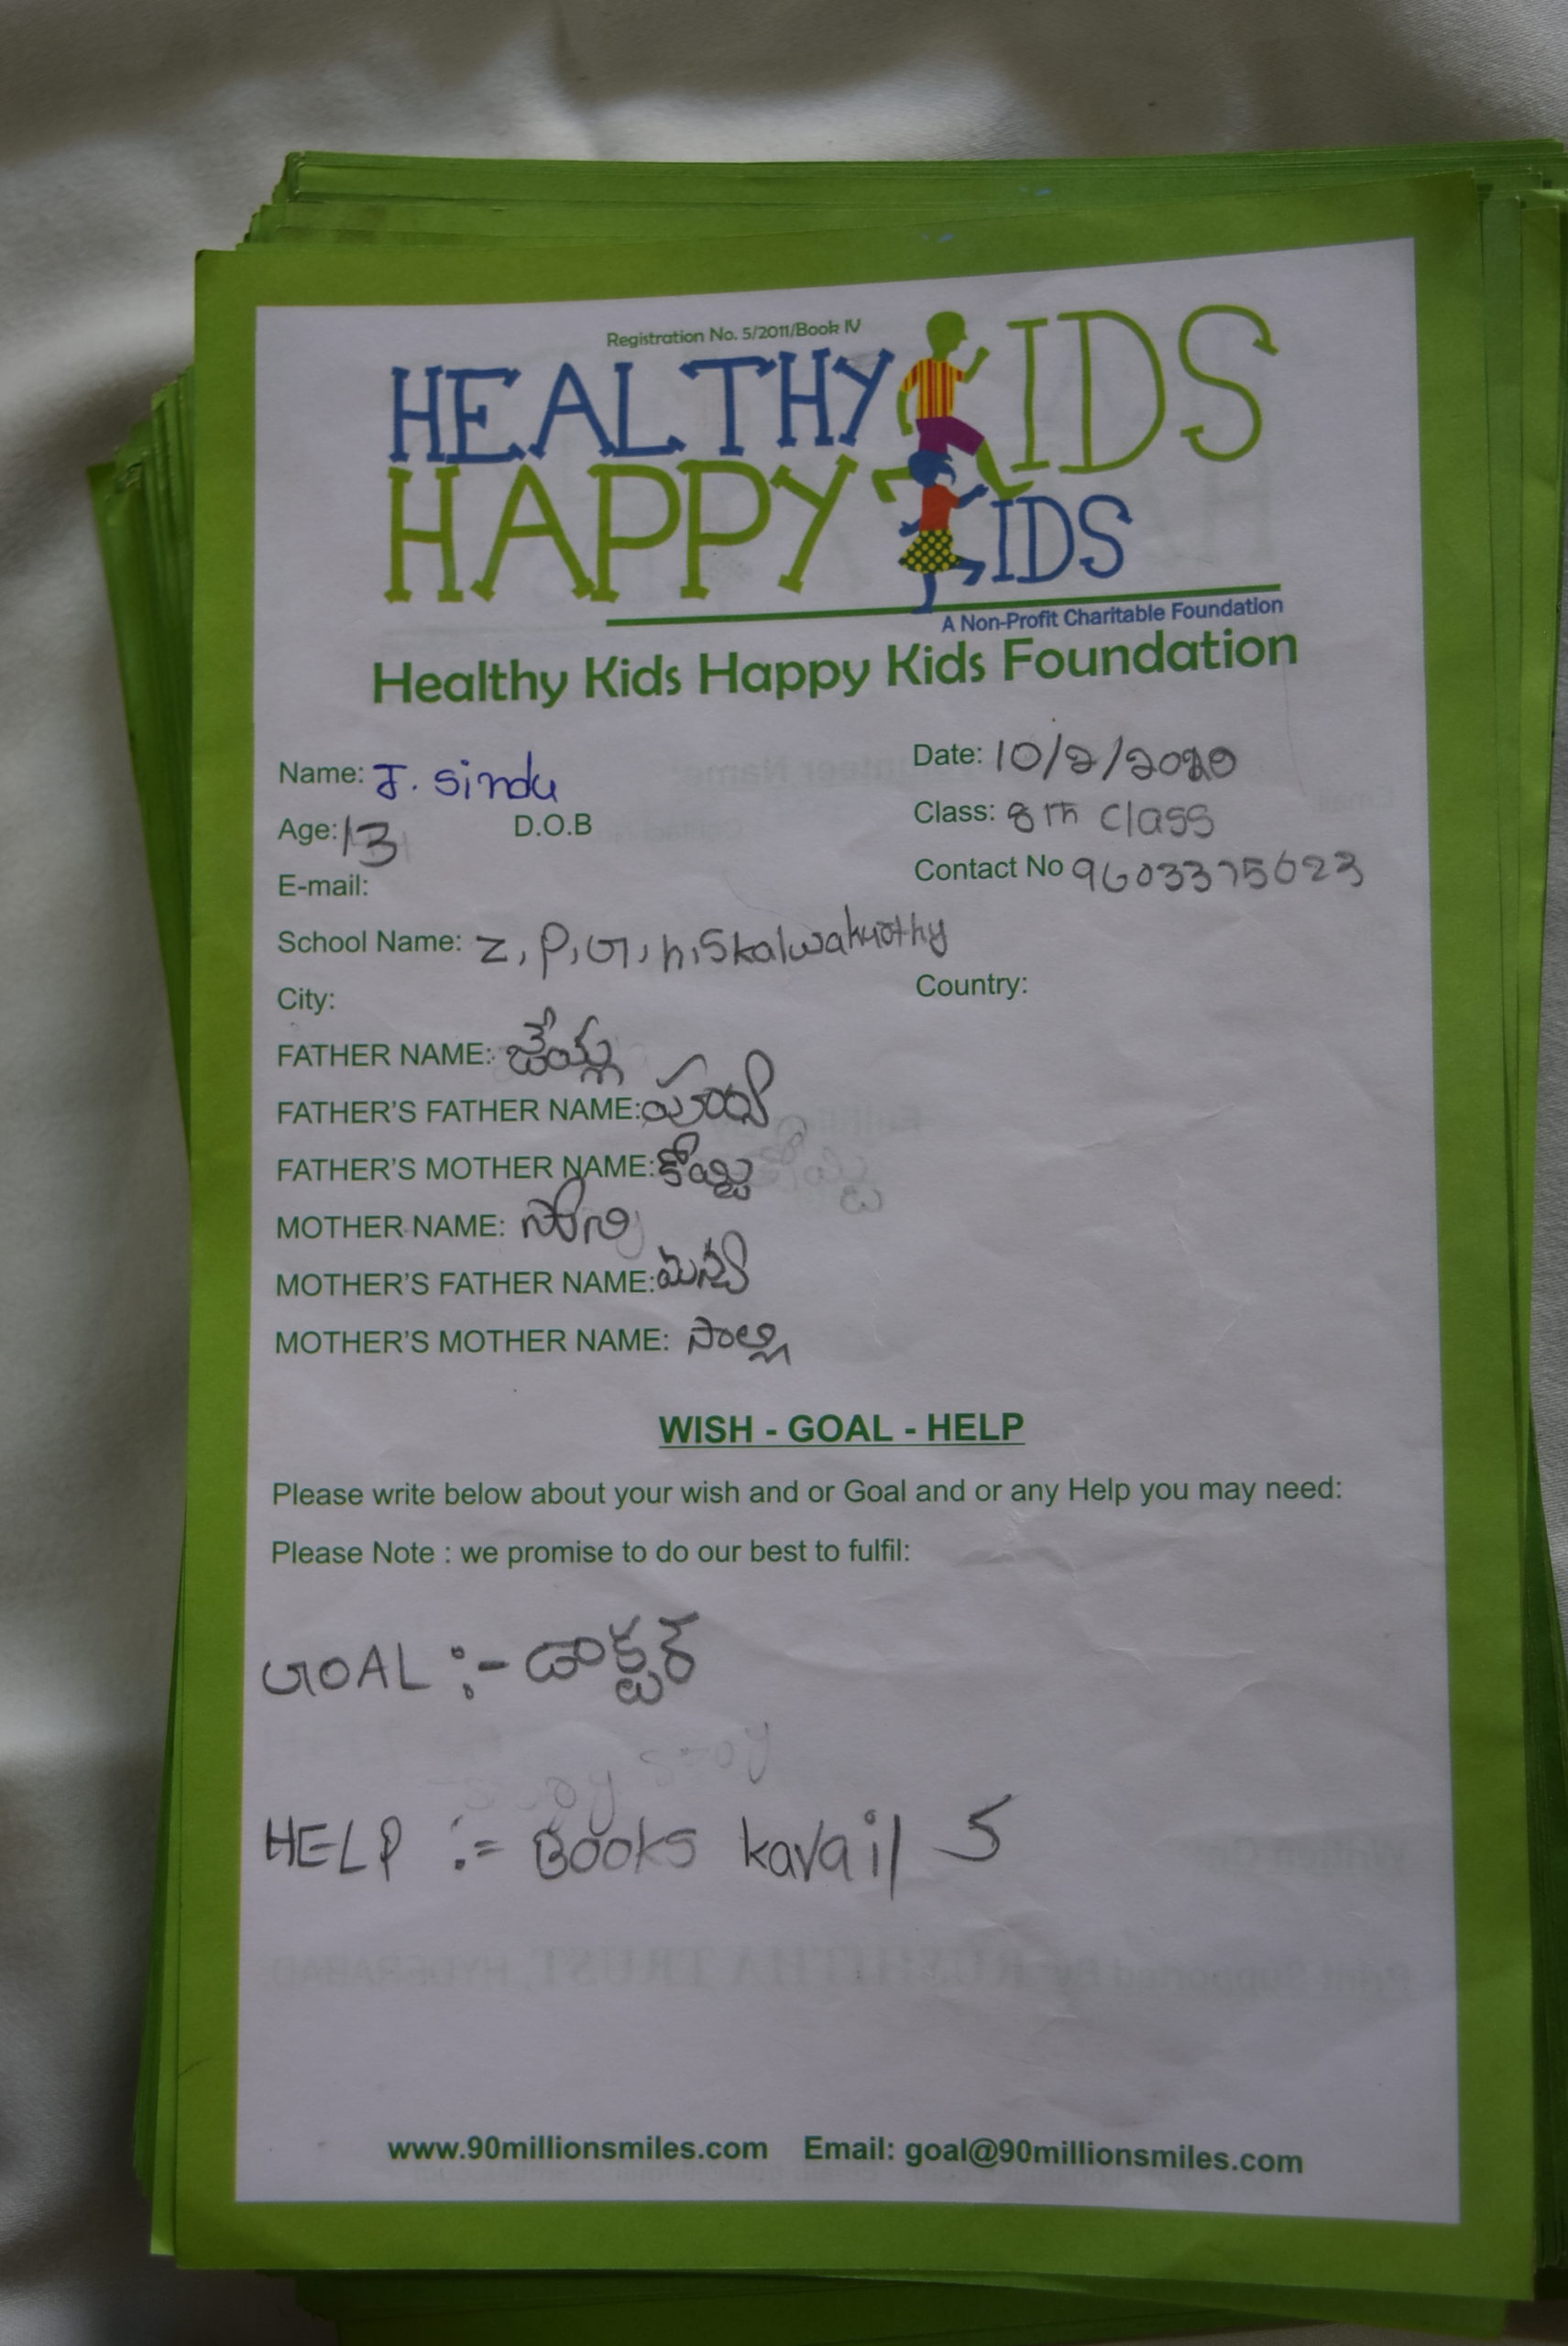 Registration No. 5/2011/Book IV
HEALTHY KIDS
HAPPY KIDS
A Non-Profit Charitable Foundation
Healthy Kids Happy Kids Foundation
Name: J. Sindu
Date: 10/2/2020
Age: 13 D.O.B
Class: 8th class
E-mail:
Contact No
School Name: Z, P, G, h, S kalwakurthy
City:
Country:
FATHER NAME:
FATHER'S FATHER NAME:
FATHER'S MOTHER NAME:
MOTHER NAME:
MOTHER'S FATHER NAME:
MOTHER'S MOTHER NAME:
WISH - GOAL - HELP
Please write below about your wish and or Goal and or any Help you may need:
Please Note : we promise to do our best to fulfil:
GOAL :- డాక్టర్
HELP := Books kavail 5
www.90millionsmiles.com Email: goal@90millionsmiles.com